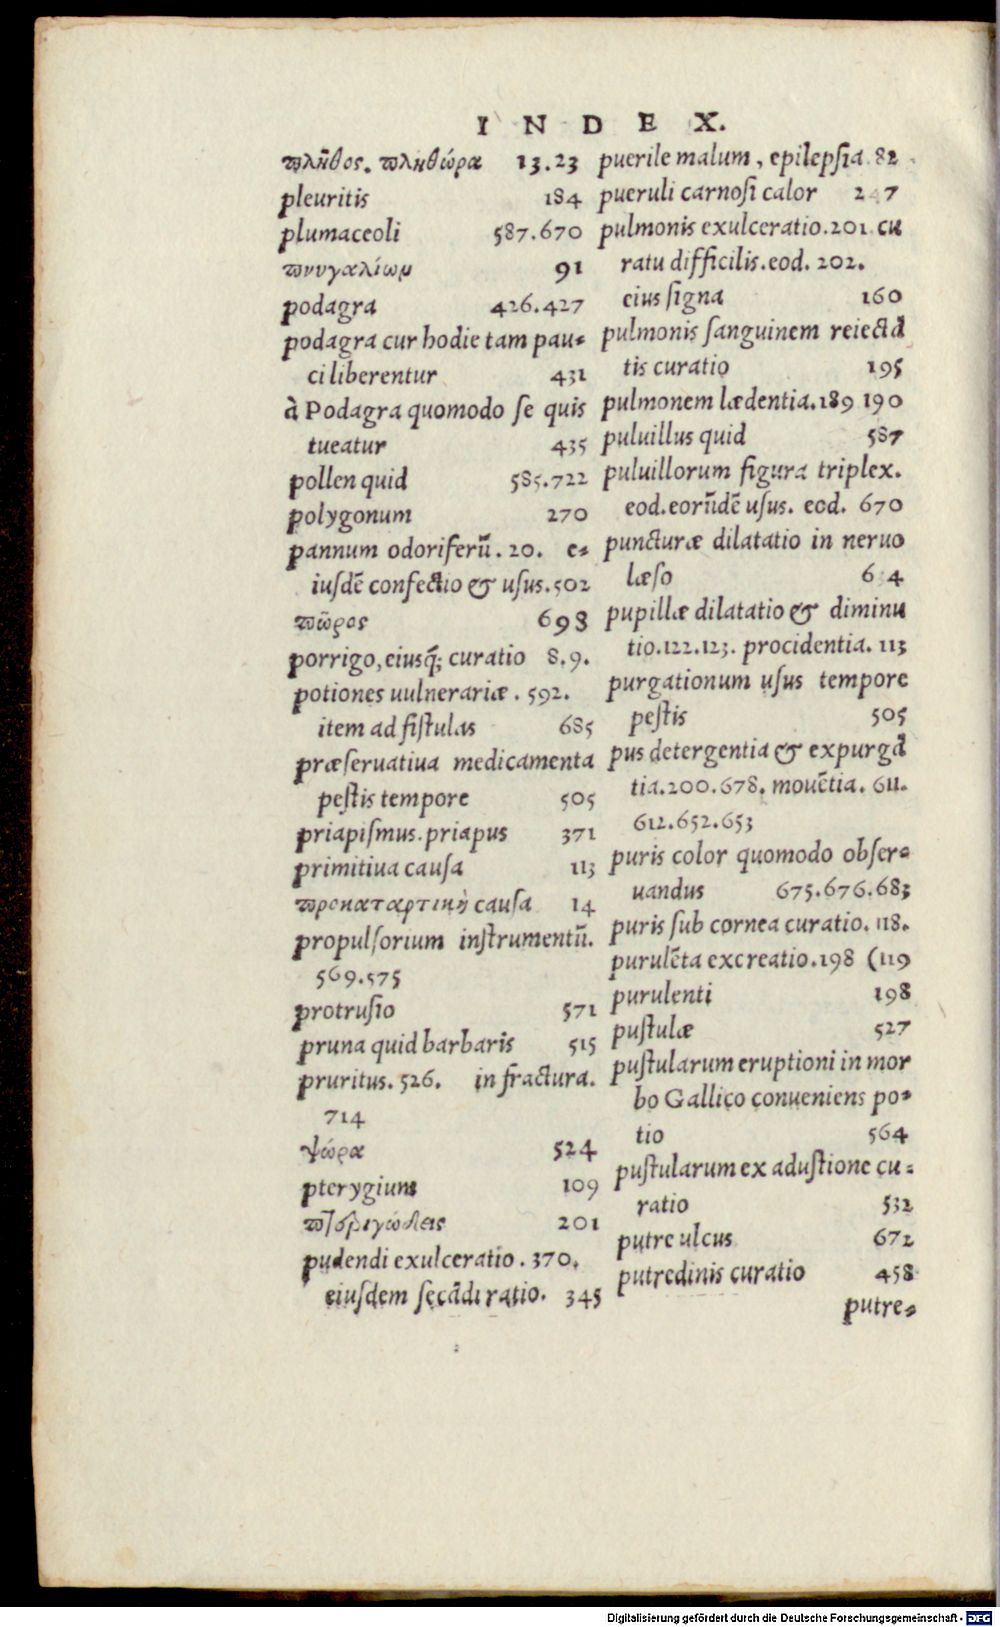 INDEX.
πλῆθος. πληθώρα 13.23
pleuritis 184
plumaceoli 587.670
πνυγαλίωμ 91
podagra 426.427
podagra cur hodie tam pau-
ci liberentur 431
à Podagra quomodo se quis
tueatur 435
pollen quid 585.722
polygonum 270
pannum odoriferū. 20. e-
iusdē confectio & usus. 502
πῶρος 698
porrigo, eiusq; curatio 8.9.
potiones uulnerariæ. 592.
item ad fistulas 685
præseruatiua medicamenta
pestis tempore 505
priapismus. priapus 371
primitiua causa 113
προκαταρτικὴ causa 14
propulsorium instrumentū.
569.575
protrusio 571
pruna quid barbaris 515
pruritus. 526. in fractura.
714
ψώρα 524
pterygium 109
201
pudendi exulceratio. 370.
eiusdem secādi ratio. 345
puerile malum, epilepsia. 82
pueruli carnosi calor 247
pulmonis exulceratio. 201. cu
ratu difficilis. eod. 202.
eius signa 160
pulmonis sanguinem reiectā
tis curatio 195
pulmonem lædentia. 189 190
puluillus quid 587
puluillorum figura triplex.
eod. eorūdē usus. eod. 670
puncturæ dilatatio in neruo
læso
pupillæ dilatatio & diminu
tio. 122.123. procidentia. 113
purgationum usus tempore
pestis 505
pus detergentia & expurgā
tia. 200.678. mouētia. 611.
612.652.653
puris color quomodo obser-
uandus 675.676.683
puris sub cornea curatio. 118.
purulēta excreatio. 198 (119
purulenti 198
pustulæ 527
pustularum eruptioni in mor
bo Gallico conueniens po-
tio 564
pustularum ex adustione cu-
ratio 532
putre ulcus 672
putredinis curatio 458
putre-
Digitalisierung gefördert durch die Deutsche Forschungsgemeinschaft - DFG